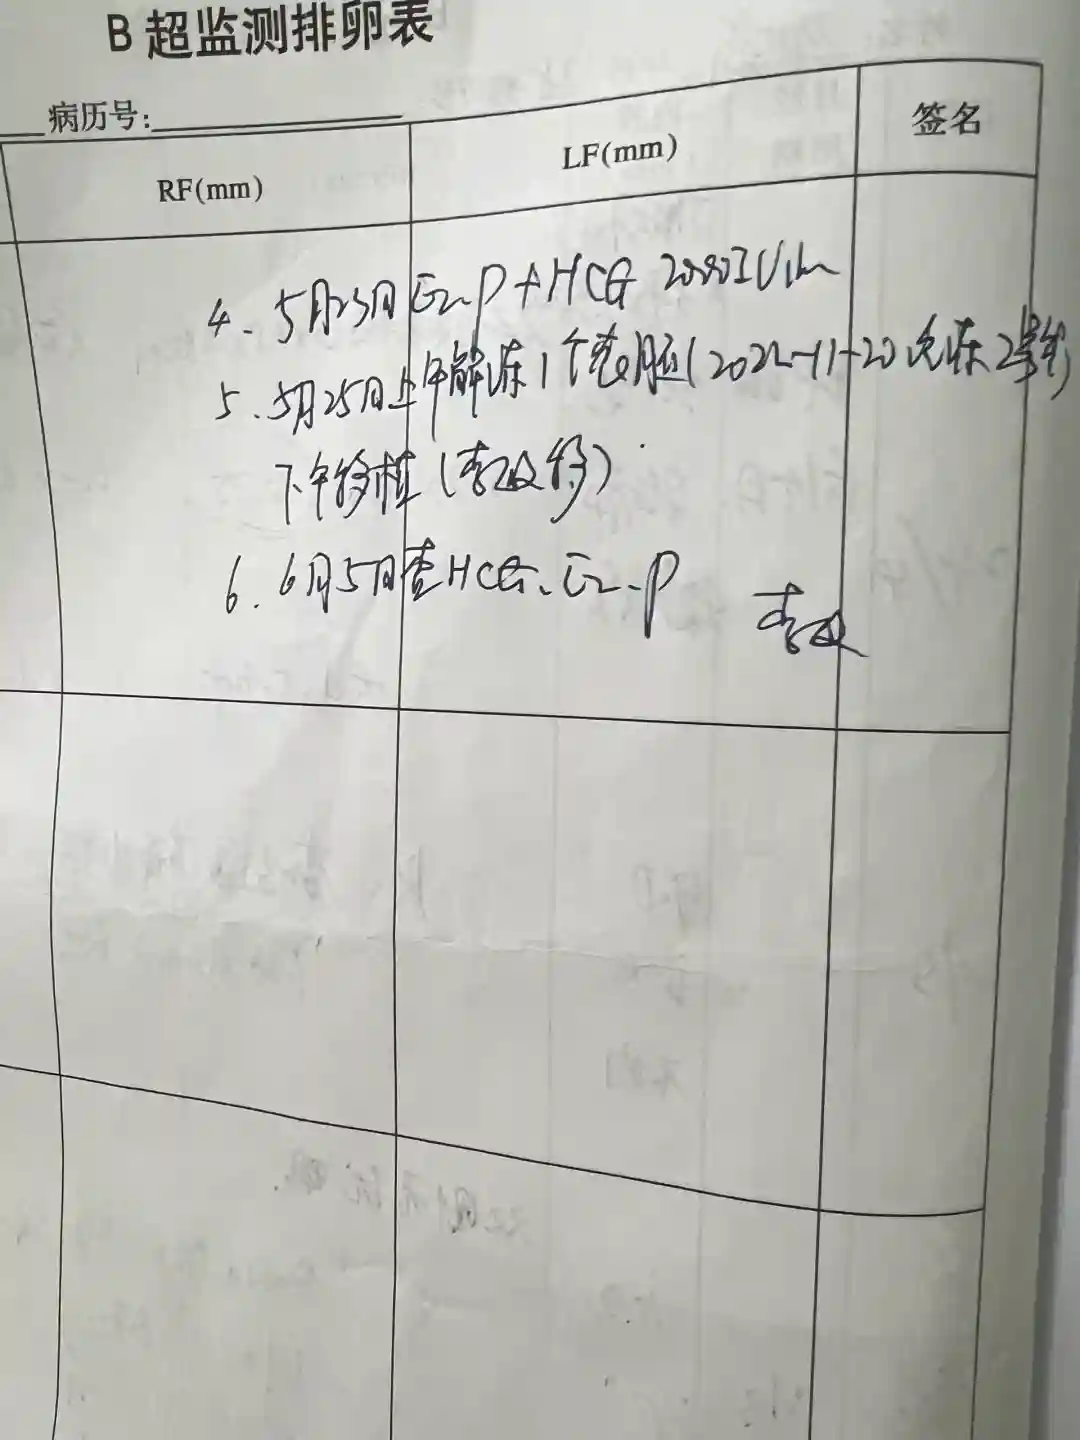 B超监测排卵表
病历号:
RF(mm) LF(mm) 签名
4. 5月23日 E2、P + HCG 2000IU im
5. 5月25日上午解冻1个囊胚(2022-11-20冷冻2号管)
下午移植(李
6. 6月5日查HCG、E2、P
李